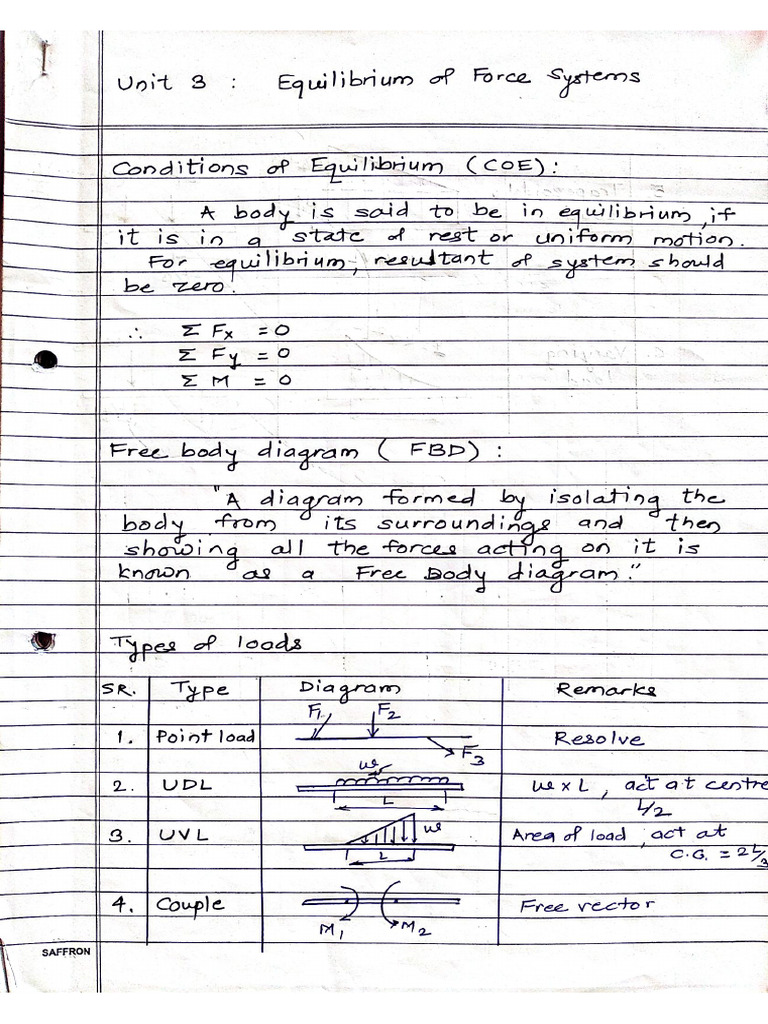 Unit 3 : Equilibrium of Force Systems
Conditions of Equilibrium (COE) :
A body is said to be in equilibrium, if
it is in a state of rest or uniform motion.
For equilibrium, resultant of system should
be zero.
∴ Σ Fx = 0
Σ Fy = 0
Σ M = 0
Free body diagram ( FBD) :
"A diagram formed by isolating the
body from its surroundings and then
showing all the forces acting on it is
known as a Free Body diagram."
Types of loads
SR. Type Diagram Remarks
F1 F2
1. Point load F3 Resolve
w
2. UDL L w x L , act at centre
L/2
3. UVL w L Area of load, act at
C.G. = 2L/3
4. Couple M1 M2 Free vector
SAFFRON